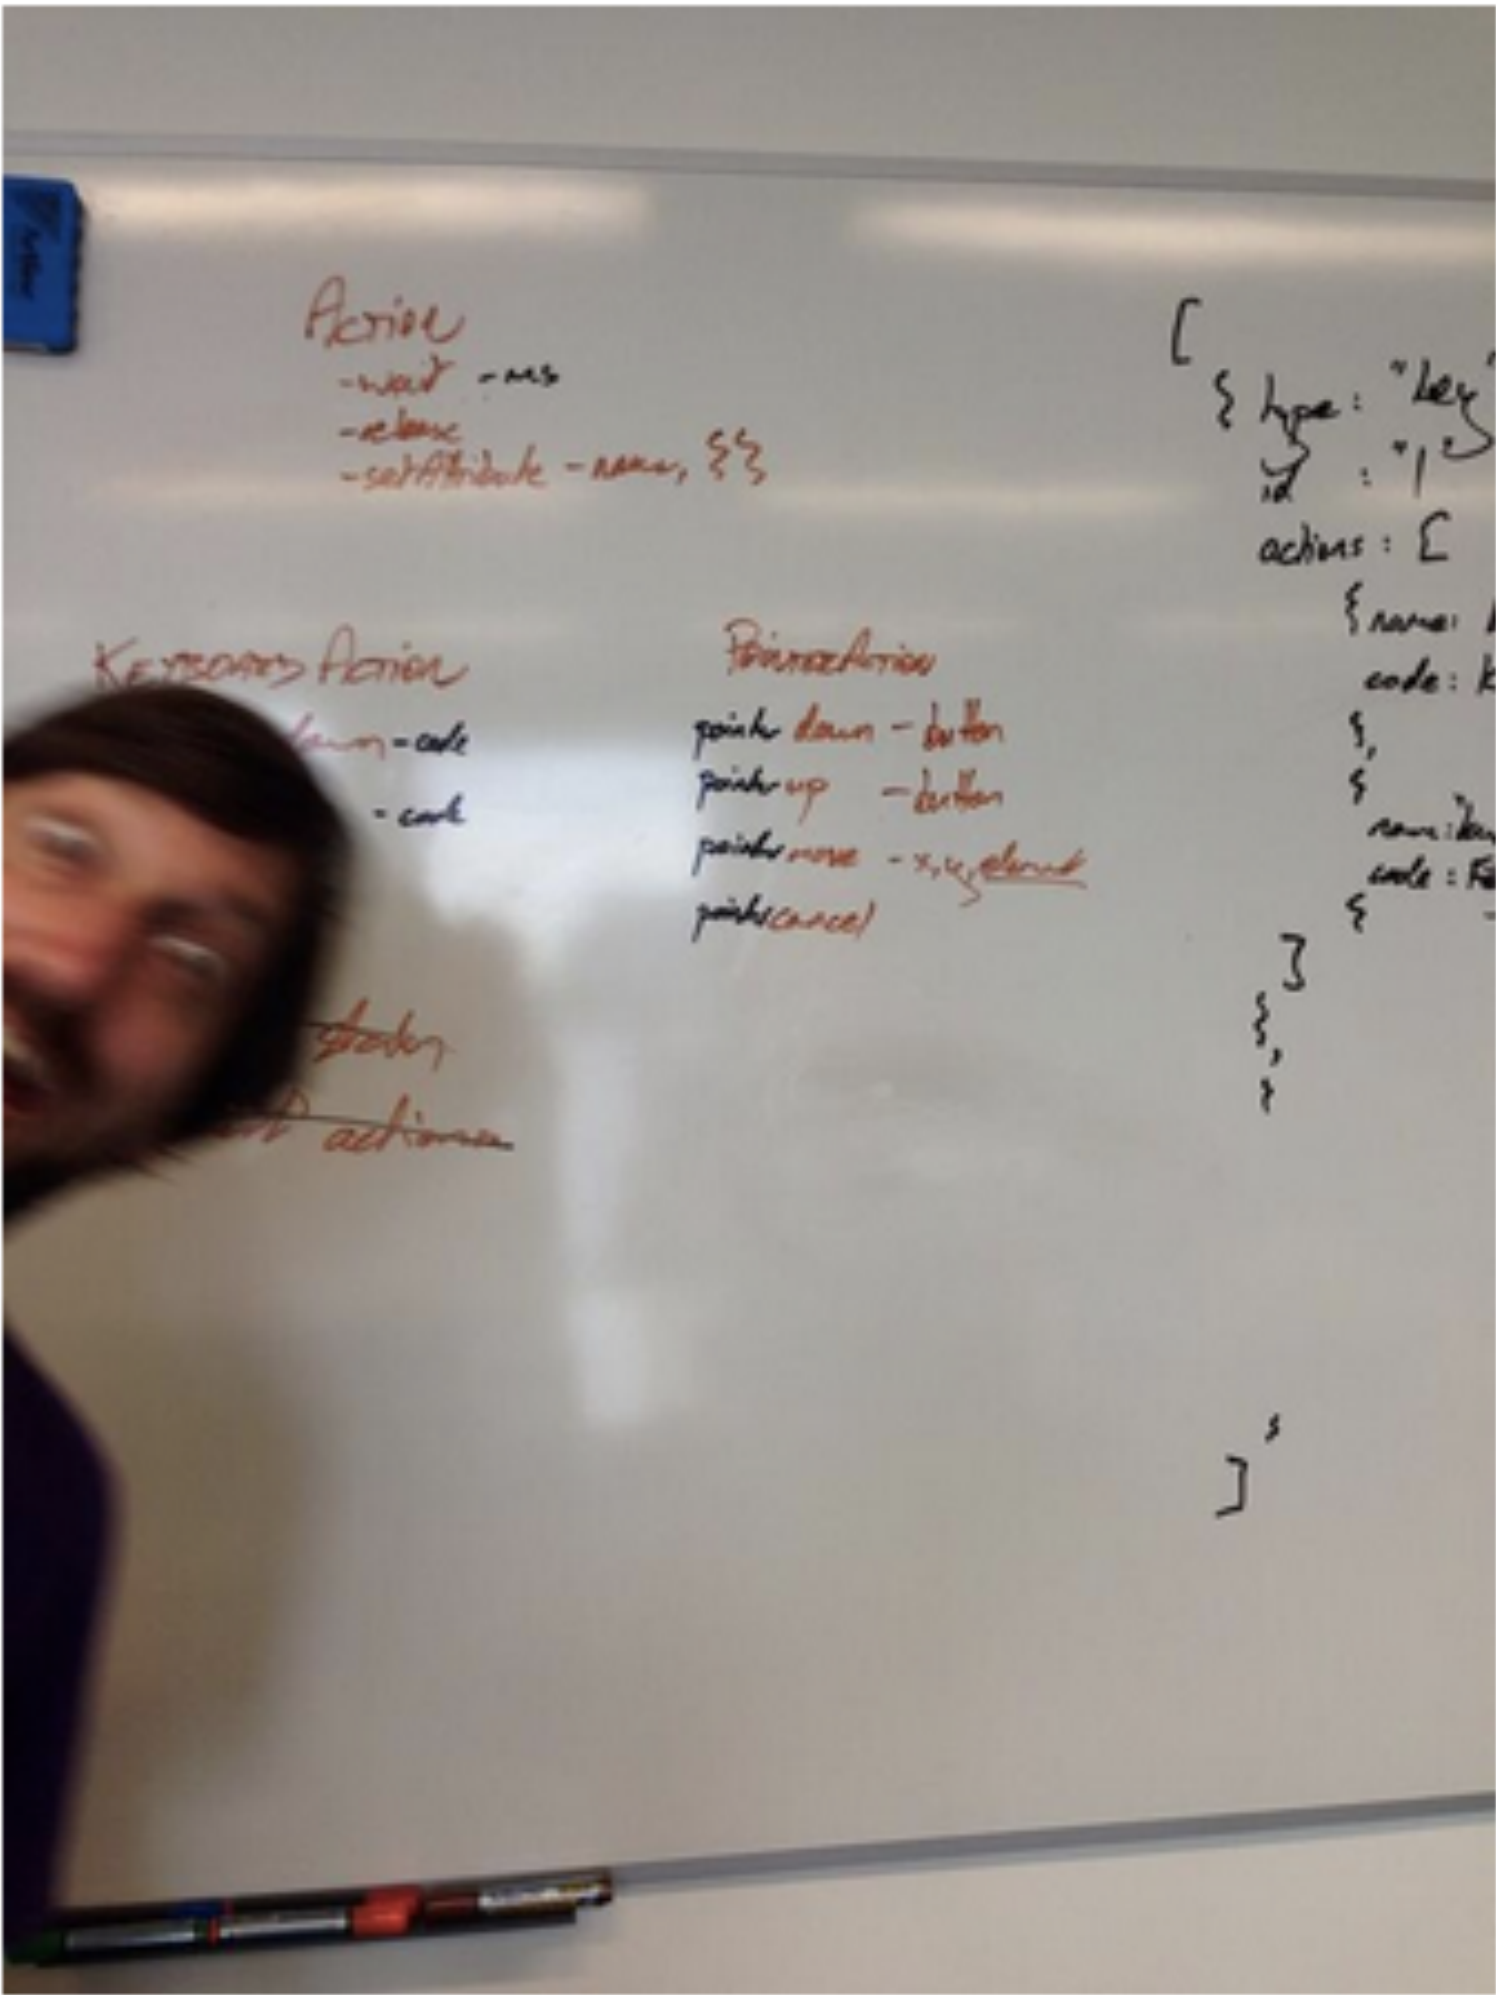 Action
-wait -ms
-release
-setAttribute -name, {}
KEYBOARD Action
down -code
- code
Pointer Action
pointer down - button
pointer up - button
pointer move - x, y, element
pointer cancel
actions
[
{ type: "key"
id : "1"
actions: [
{ name:
code: K
},
{
name:
code:
{
]
},
]